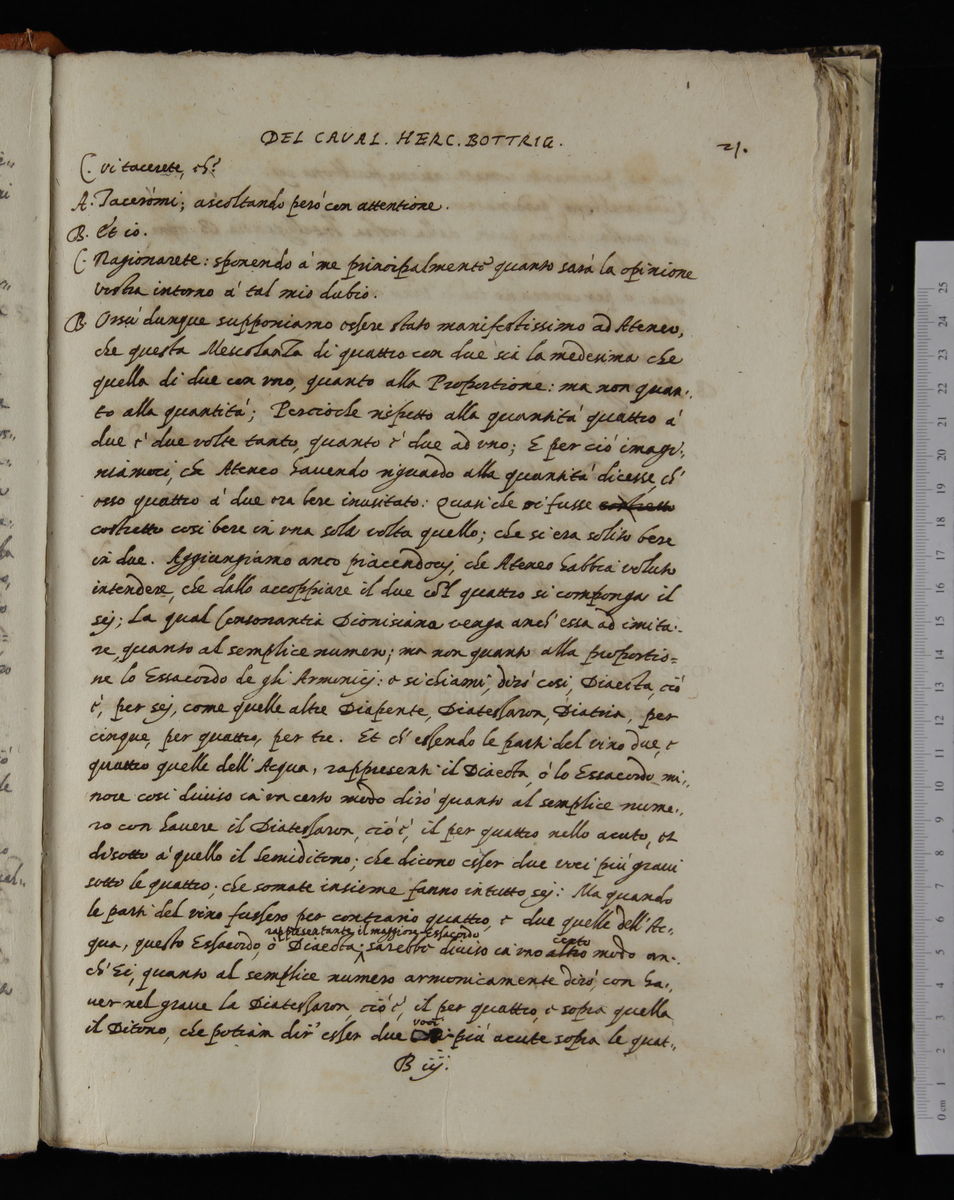 DEL CAVAL. HERC. BOTTRIG.
21.
C. vi tacerete, ch'?
A. Taceromi; ascoltando peró con attentione.
B. Et io.
C. Ragionarete: sponendo á me principalmente quanto sará la opinione
vostra intorno á tal mio dubio.
B. Orsu dunque supponiamo essere stato manifestissimo ad Ateneo,
che questa Mescolanza di quattro con due sia la medesima che
quella di due con vno, quanto alla Proportione: ma non quan-
to alla quantitá; Percioche rispetto alla quantitá quattro á
due é due volte tanto, quanto é due ad vno; E per ció imagi-
niamoci, che Ateneo havendo riguardo alla quantitá dicesse, ch'
esso quattro á due era bere inusitato: Quasi che vi fusse
costretto cosi bere in vna sola volta quello; che si era solito bere
in due. Aggiungiamo anco piacendovi, che Ateneo habbia voluto
intendere, che dallo accoppiare il due col quattro si componga il
sej; La qual Consonantia Dionisiana venga anch' essa ad imita-
re, quanto al semplice numero; ma non quanto alla proportio=
ne lo Essacordo de gli Armonicj: e si chiami, diró cosi, Diaecta, ció
é, per sej, come quelle altre Diapente, Diatessaron, Diatria, per
cinque, per quattro, per tre. Et ch' essendo le parti del vino due, e
quattro quelle dell' Acqua, rappresenti il Diaecta, ó lo Essacordo mi-
nore cosi diuiso in vn certo modo diró quanto al semplice nume-
ro con havere il Diatessaron, ció é, il per quattro nello acuto, et
disotto á quello il Semiditono; che dicono esser due voci piú graui
sotto le quattro; che somate insieme fanno in tutto sej: Ma quando
le parti del vino fussero per contrario quattro, e due quelle dell' Ac-
rappresentante il maggiore essacordo
qua, questo Essacordo, ó Diaecta sarebbe diuiso in vno altro modo an-
certo
ch' Ei, quanto al semplice numero armonicamente diró, con ha-
uer nel graue la Diatessaron, ció é, il per quattro, e sopra quella
il Ditono, che potriam dir' esser due piú acute sopra le quat-
voci
B iij.